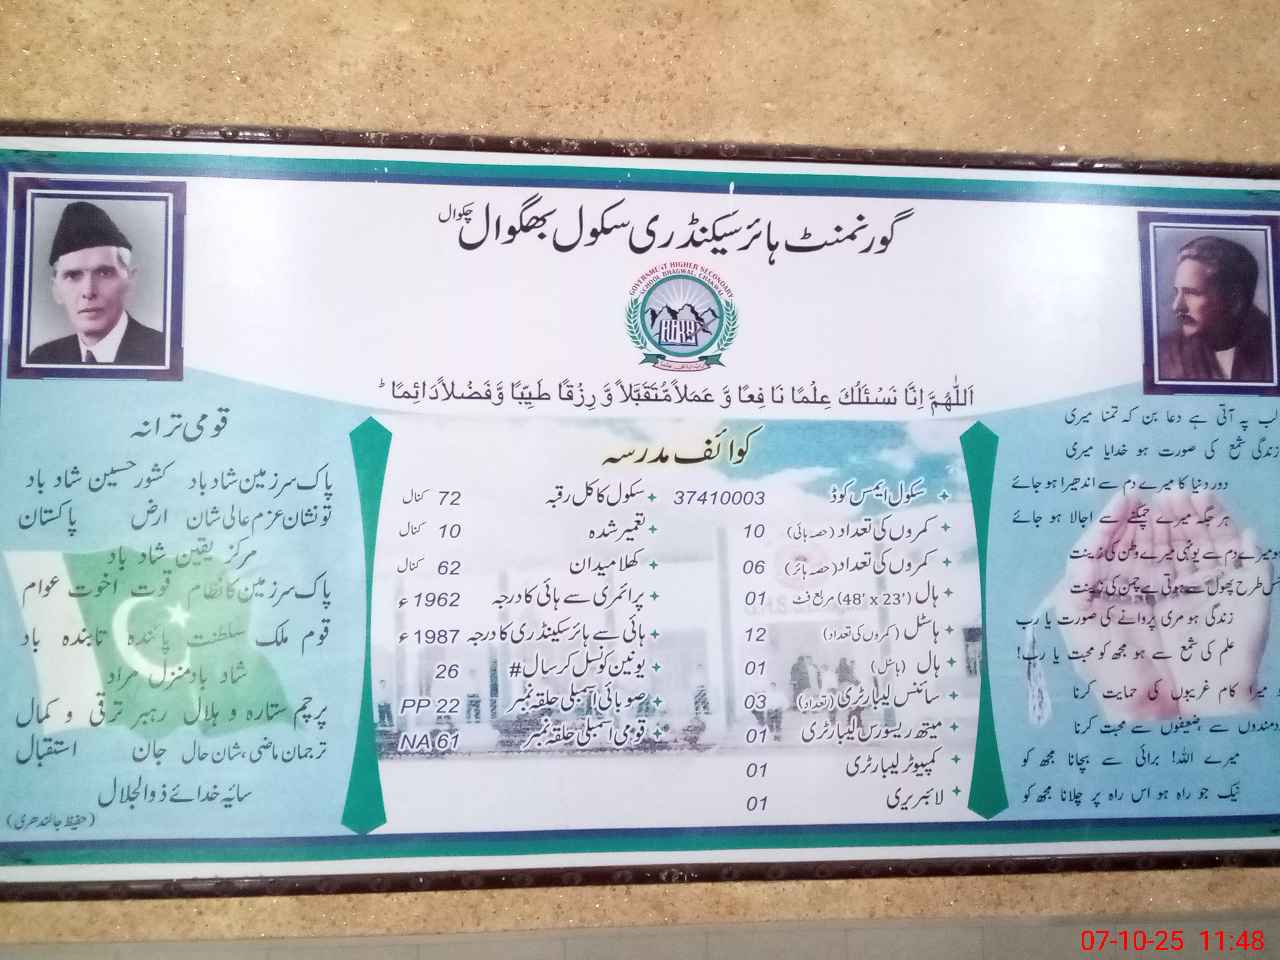 گورنمنٹ ہائر سیکنڈری سکول بھگوال چکوال
GOVERNMENT HIGHER SECONDARY
SCHOOL BHAGWAL, CHAKWAL
اَللّٰهُمَّ اِنَّا نَسْئَلُكَ عِلْمًا نَافِعًا وَّ عَمَلاً مُّتَقَبَّلاً وَّ رِزْقًا طَيِّبًا وَّ فَضْلاً دَائِمًا ط
کوائف مدرسہ
سکول ایمس کوڈ 37410003
کمروں کی تعداد (حصہ ہائی) 10
کمروں کی تعداد (حصہ ہائر) 06
ہال (48' x 23') مربع فٹ 01
ہاسٹل (کمروں کی تعداد) 12
ہال (ہاسٹل) 01
سائنس لیبارٹری (تعداد) 03
میتھ ریسورس لیبارٹری 01
کمپیوٹر لیبارٹری 01
لائبریری 01
سکول کا کل رقبہ 72 کنال
تعمیر شدہ 10 کنال
کھلا میدان 62 کنال
پرائمری سے ہائی کا درجہ 1962ء
ہائی سے ہائر سیکنڈری کا درجہ 1987ء
یونین کونسل کرسال# 26
صوبائی اسمبلی حلقہ نمبر PP 22
قومی اسمبلی حلقہ نمبر NA 61
لب پہ آتی ہے دعا بن کہ تمنا میری
زندگی شمع کی صورت ہو خدایا میری
دور دنیا کا میرے دم سے اندھیرا ہو جائے
ہر جگہ میرے چمکنے سے اجالا ہو جائے
ہو میرے دم سے یونہی میرے وطن کی زینت
جس طرح پھول سے ہوتی ہے چمن کی زینت
زندگی ہو مری پروانے کی صورت یا رب
علم کی شمع سے ہو مجھ کو محبت یا رب!
ہو میرا کام غریبوں کی حمایت کرنا
دردمندوں سے ضعیفوں سے محبت کرنا
میرے اللہ! برائی سے بچانا مجھ کو
نیک جو راہ ہو اس راہ پر چلانا مجھ کو
قومی ترانہ
پاک سرزمین شاد باد کشور حسین شاد باد
تو نشان عزم عالی شان ارض پاکستان
مرکز یقین شاد باد
پاک سرزمین کا نظام قوت اخوت عوام
قوم ملک سلطنت پائندہ تابندہ باد
شاد باد منزل مراد
پرچم ستارہ و ہلال رہبر ترقی و کمال
ترجمان ماضی، شان حال جان استقبال
سایہ خدائے ذوالجلال
(حفیظ جالندھری)
07-10-25 11:48